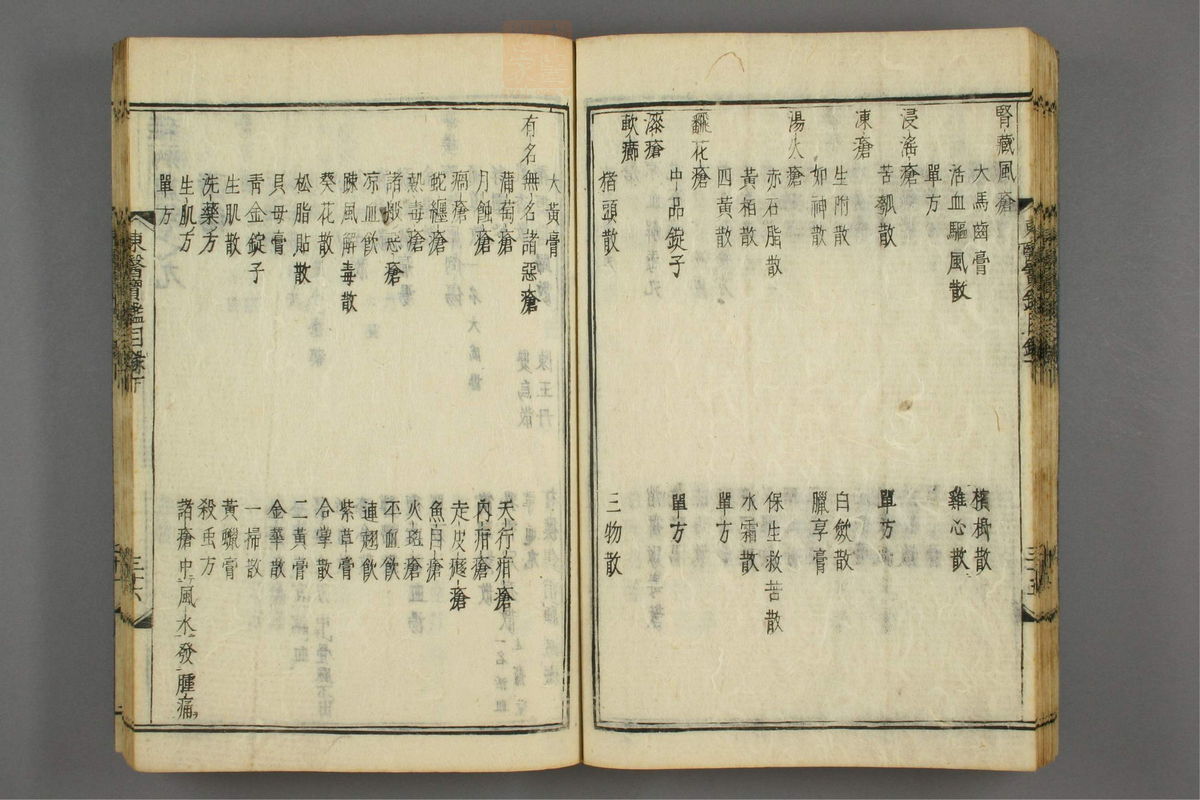 腎藏風瘡
大馬齒膏
檳榔散
活血驅風散
雞心散
單方
浸淫瘡
苦瓠散
單方
凍瘡
生附散
白斂散
如神散
臘享膏
湯火瘡
赤石脂散
保生救苦散
黃柏散
水霜散
四黃散
單方
翻花瘡
中品錠子
單方
漆瘡
軟癤
猪頭散
三物散
大黃膏
有名無名諸惡瘡
蒲萄瘡
天行瘡
月蝕瘡
內疳瘡
瘑瘡
走皮瘡
蛇纏瘡
魚目瘡
熱毒瘡
火瘢瘡
諸般惡瘡
平血飮
凉血飮
連翹飮
疎風解毒散
紫草膏
葵花散
合掌散
松脂貼散
二黃膏
貝母膏
金華散
靑金錠子
一掃散
生肌散
黃蠟膏
洗藥方
殺虫方
生肌方
諸瘡中風水發腫痛
單方
東醫寶鑑目錄下
三十六